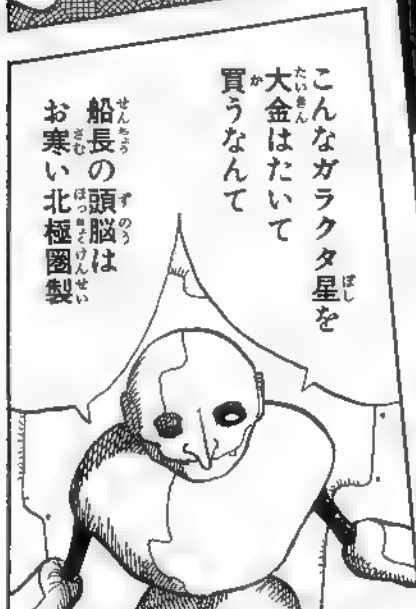 こんなガラクタ星を
大金はたいて
買うなんて
船長の頭脳は
お寒い北極圏製